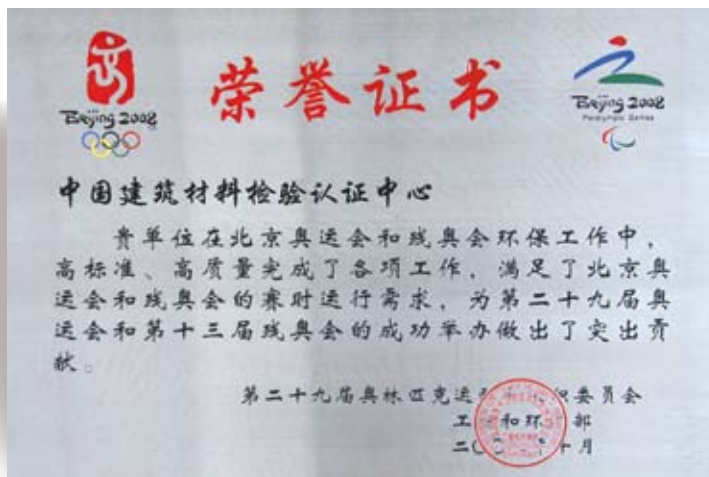 荣誉证书
Beijing 2008
Beijing 2008
Paralympic Games
中国建筑材料检验认证中心
贵单位在北京奥运会和残奥会环保工作中，
高标准、高质量完成了各项工作，满足了北京奥
运会和残奥会的赛时运行需求，为第二十九届奥
运会和第十三届残奥会的成功举办做出了突出贡
献。
第二十九届奥林匹克运 委员会
工 和环 部
二〇 十月